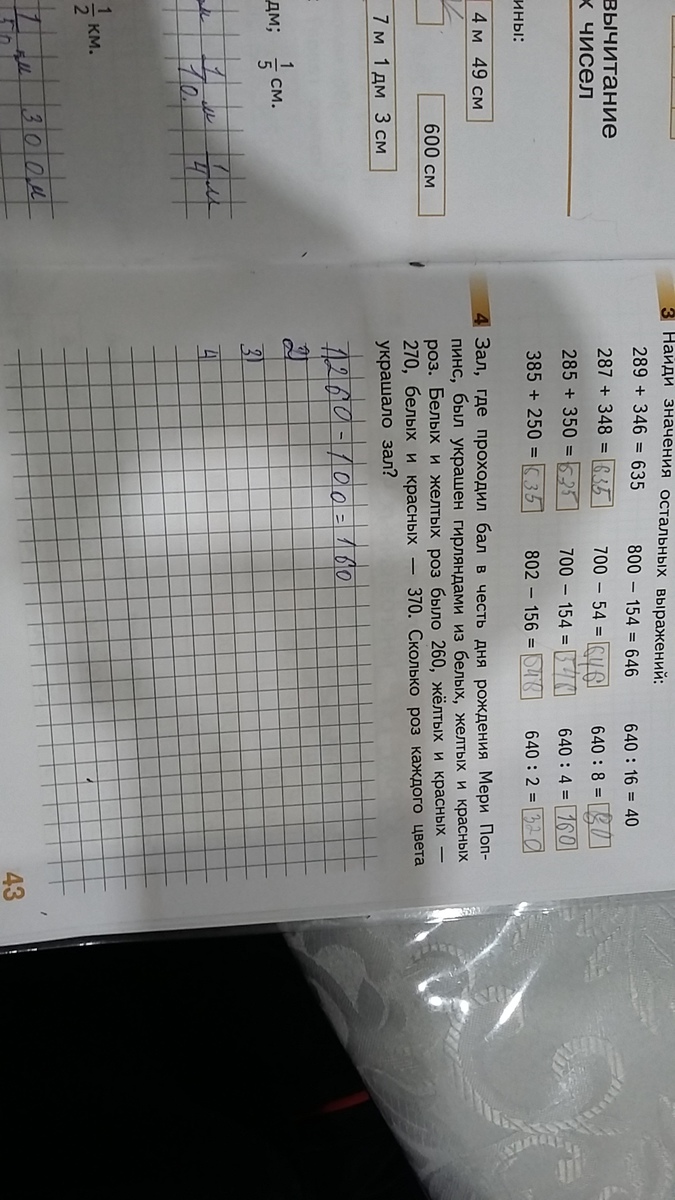 вычитание
к чисел
ины:
4 м 49 см
600 см
7 м 1 дм 3 см
дм; 1/5 см.
м 1/10 м 1/4 м
1/2 км.
300 м
3 Найди значения остальных выражений:
289 + 346 = 635 800 − 154 = 646 640 : 16 = 40
287 + 348 = 635 700 − 54 = 646 640 : 8 = 80
285 + 350 = 635 700 − 154 = 546 640 : 4 = 160
385 + 250 = 635 802 − 156 = 640 : 2 = 320
4 Зал, где проходил бал в честь дня рождения Мери Поп-
пинс, был украшен гирляндами из белых, желтых и красных
роз. Белых и желтых роз было 260, жёлтых и красных —
270, белых и красных — 370. Сколько роз каждого цвета
украшало зал?
1) 260 - 100 = 160
2)
3)
4
43